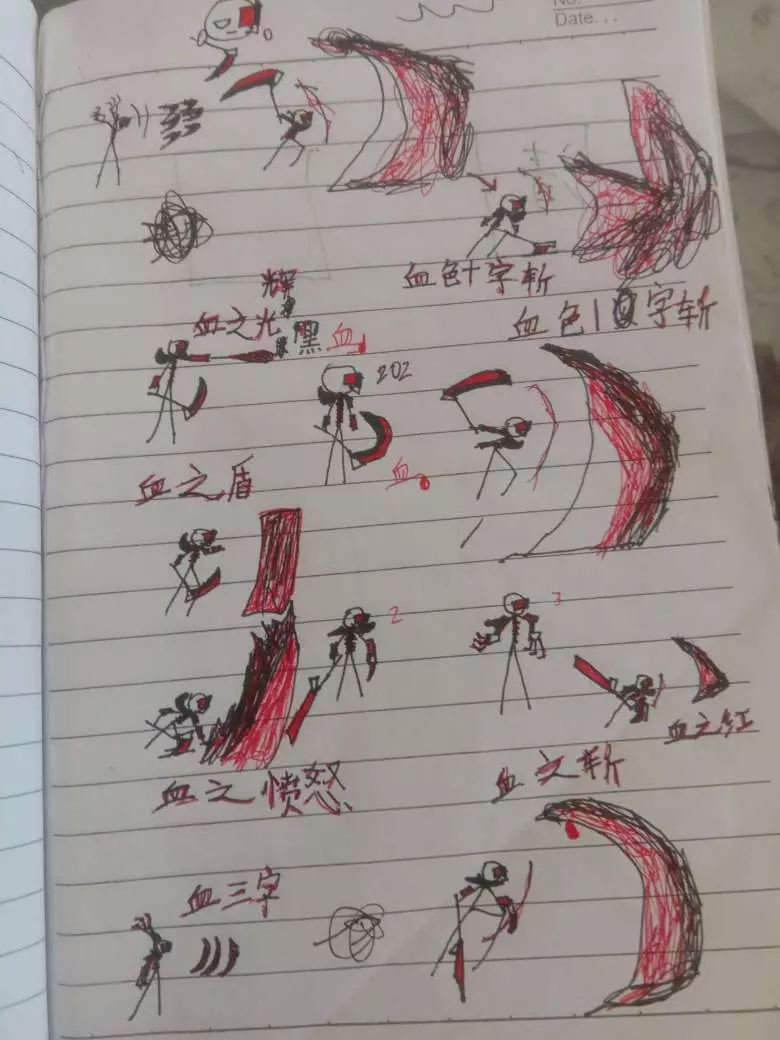 No:
Date...
血色十字斩
辉
血之光
黑 血
血色10字斩
202
血之盾
血
2
3
血之红
血之愤怒
血之斩
血三字